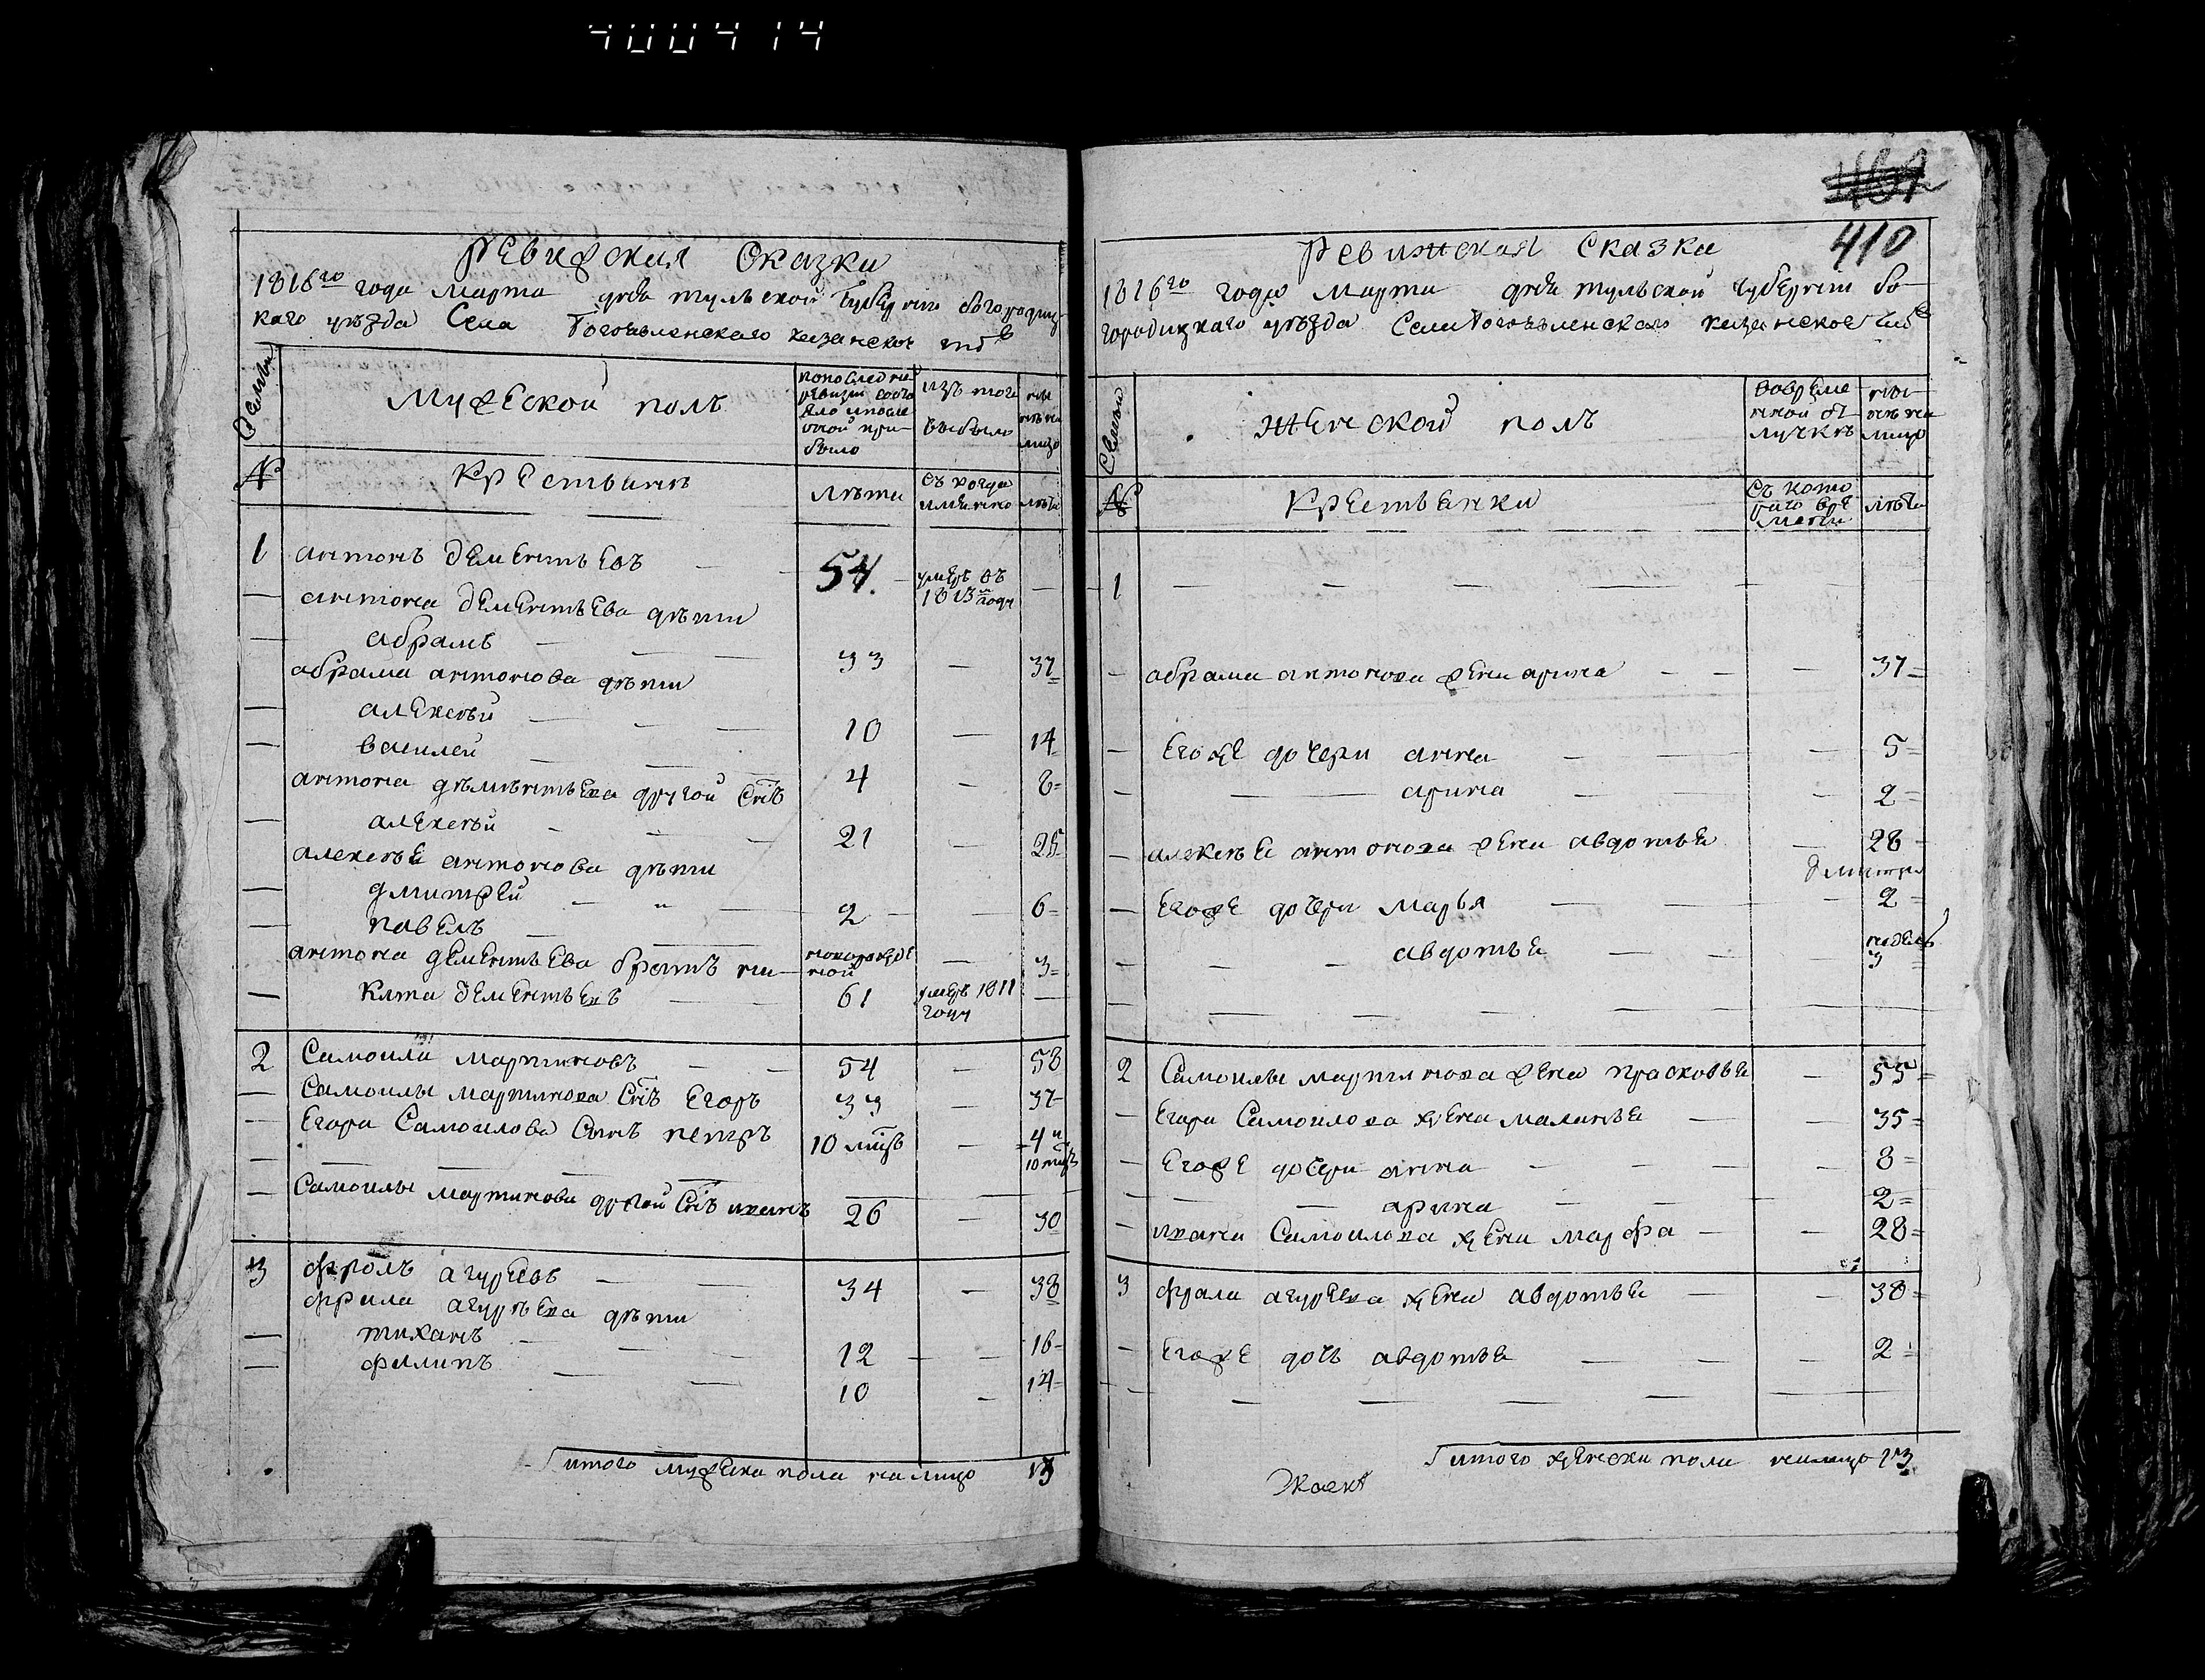 410
Ревижская Сказка
1816го года марта дня тульской губернии богородиц
каго уезда Села Богоявленскаго казанское тоже
Семьи
Мужеской полъ
попоследней
ревизии состо
яло и после
оной при-
было
изъ того
выбыло
ныне
налицо
№
Крестьяне
лета
Съ когда
имянно
лета
1 антонъ дементьевъ 54. умеръ въ
1813м году
антона дементьева дети
абрамъ 33 37
абрама антонова дети
алексей 10 14
василей 4 8
антона дементьева другой Снъ
алексей 21 25
алексея антонова дети
дмитрей 2 6
павелъ новорожде
ной 3
антона дементьева братъ ни-
кита дементьевъ 61 умеръ 1811
году
2 Самоила мартиновъ 54 58
Самоилы мартинова Снъ Егоръ 33 37
Егора Самоилова Сынъ петръ 10 мцъ 4 и
10 мцъ
Самоилы мартинова другой Снъ иванъ 26 30
3 фролъ агуреевъ 34 38
фрола агуреева дети
тиханъ 12 16
филипъ 10 14
итого мужеска пола налицо 13
Ревижская Сказка
1816го года марта дня тульской губернии бо-
городицкаго уезда Села Богоявленскаго казанское тоже
Семьи
женской полъ
вовреме
нной от
лучке
ныне
налицо
№
Крестьянки
Съ кото
раго вре
мени
лета
1
абрама антонова жена арина 37
Егоже дочери анна 5
арина 2
алексея антонова жена авдотья 28
Егоже дочери марья 2
авдотья недель
3
2 Самоилы мартинова жена прасковья 55
Егора Самоилова жена маланья 35
Егоже дочери анна 8
арина 2
ивана Самоилова жена марфа 28
3 фрала агуреева жена авдотья 38
Егоже дочь авдотья 2
итого женска пола налицо 13